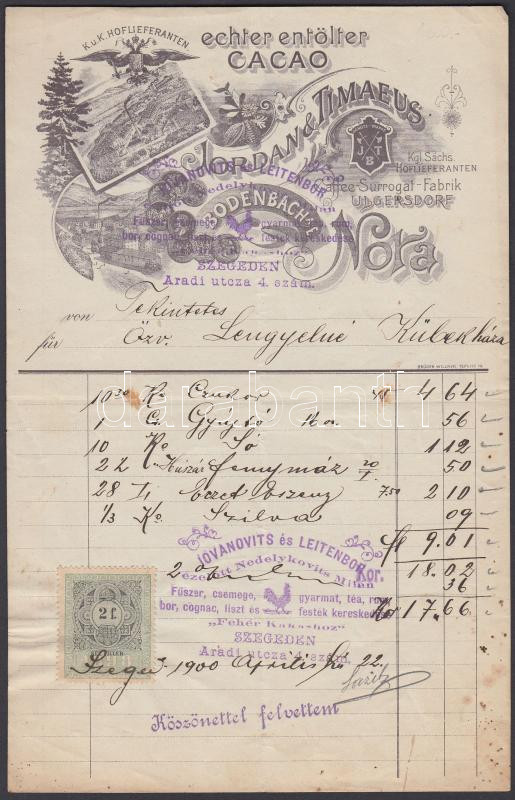 K.u.K. HOFLIEFERANTEN
echter entölter
CACAO
JORDAN & TIMAEUS
Kgl. Sächs.
HOFLIEFERANTEN
Kaffee-Surrogat-Fabrik
ULGERSDORF
BODENBACH
Nora
JOVANOVITS és LEITENBOR
Nedelykovits Milán
Fűszer, csemege, gyarmat, tea, rum,
bor, cognac, liszt és festék kereskedése
SZEGEDEN
Aradi utcza 4. szám.
von Tekintetes
für Özv. Lengyelné Kübekháza
darabanth
10 Ko Czukor 4 64
1 Gyujtó 56
10 Ko Só 1 12
2 Huszár fénymáz 50
28 Eczet Eszenz 7.50 2 10
1/3 Ko Szilva 09
fl 9.01
Kor. 18.02
2 % 36
Kor 17.66
JOVANOVITS és LEITENBOR
ezelőtt Nedelykovits Milán
Fűszer, csemege, gyarmat, tea, rum,
bor, cognac, liszt és festék kereskedése
„Fehér Kakashoz"
SZEGEDEN
Aradi utcza 4. szám.
2 f.
Szeged 1900 Április hó 22.
Köszönettel felvettem